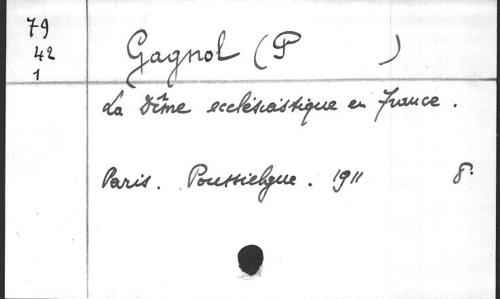 79
42
1
Gagnol (P )
La Dîme ecclésiastique en France.
Paris. Poussielgue. 1911 8°